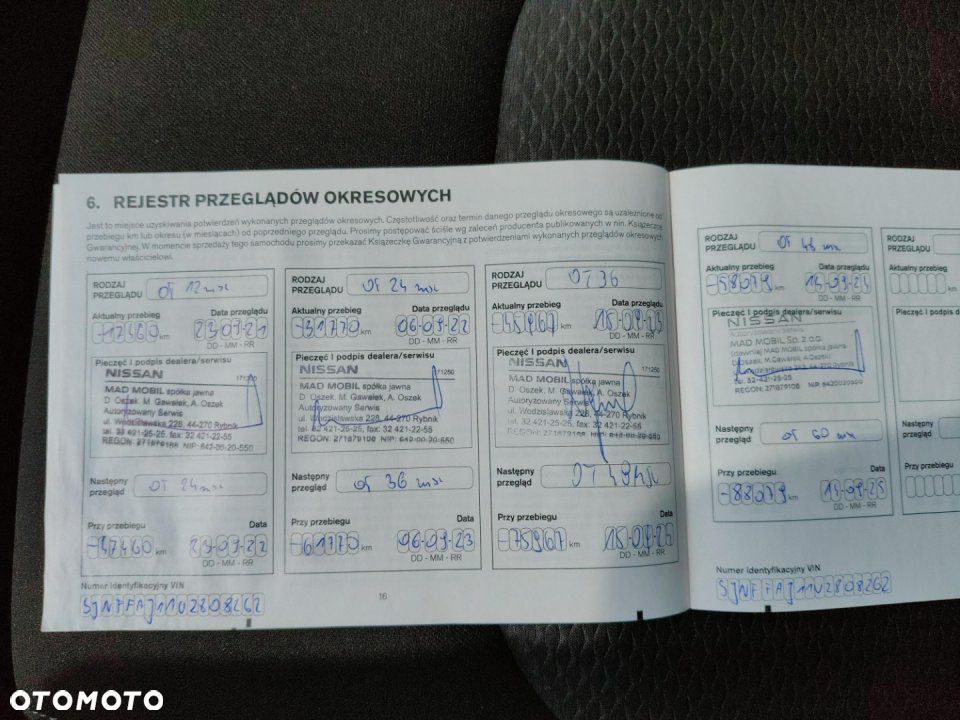 6. REJESTR PRZEGLĄDÓW OKRESOWYCH
Jest to miejsce uzyskiwania potwierdzeń wykonanych przeglądów okresowych. Częstotliwość oraz termin danego przeglądu okresowego są uzależnione od
przebiegu km lub okresu (w miesiącach) od poprzedniego przeglądu. Prosimy postępować ściśle wg zaleceń producenta publikowanych w nin. Książeczce
Gwarancyjnej. W momencie sprzedaży tego samochodu prosimy przekazać Książeczkę Gwarancyjną z potwierdzeniami wykonanych przeglądów okresowych
nowemu właścicielowi.
RODZAJ
PRZEGLĄDU OT 12 msc
Aktualny przebieg Data przeglądu
km 23-09-21
DD - MM - RR
Pieczęć i podpis dealera/serwisu
NISSAN 171250
MAD MOBIL spółka jawna
D. Oszek, M. Gawałek, A. Oszek
Autoryzowany Serwis
ul. Wodzisławska 228, 44-270 Rybnik
tel. 32 421-25-25, fax: 32 421-22-55
REGON: 271879108 NIP: 642-00-20-550
Następny
przegląd OT 24 msc
Przy przebiegu Data
-37460 km 23-09-22
DD - MM - RR
Numer identyfikacyjny VIN
SJNFFAJ11U2808262
RODZAJ
PRZEGLĄDU OT 24 msc
Aktualny przebieg Data przeglądu
-31770 km 06-09-22
DD - MM - RR
Pieczęć i podpis dealera/serwisu
NISSAN 171250
MAD MOBIL spółka jawna
D. Oszek, M. Gawałek, A. Oszek
Autoryzowany Serwis
ul. Wodzisławska 228, 44-270 Rybnik
tel. 32 421-25-25, fax: 32 421-22-55
REGON: 271879108 NIP: 642-00-20-550
Następny
przegląd OT 36 msc
Przy przebiegu Data
-61770 km 06-09-23
DD - MM - RR
RODZAJ
PRZEGLĄDU OT 36
Aktualny przebieg Data przeglądu
-45967 km 15-09-23
DD - MM - RR
Pieczęć i podpis dealera/serwisu
NISSAN 171250
MAD MOBIL spółka jawna
D. Oszek, M. Gawałek, A. Oszek
Autoryzowany Serwis
ul. Wodzisławska 228, 44-270 Rybnik
tel. 32 421-25-25, fax: 32 421-22-55
Następny
przegląd OT
Przy przebiegu Data
-75967 km
DD - MM - RR
16
RODZAJ
PRZEGLĄDU OT 48 msc
Aktualny przebieg Data przeglądu
-58079 km
DD - MM - RR
Pieczęć i podpis dealera/serwisu
NISSAN
Autoryzowany Serwis
MAD MOBIL Sp. z o.o.
(dawniej MAD MOBIL spółka jawna
tel. 32-421-25-25
REGON: 271879108 NIP: 6420020550
Następny
przegląd OT 60 msc
Przy przebiegu Data
-88079 km 13-09-25
DD - MM - RR
Numer identyfikacyjny VIN
SJNFFAJ11U2808262
RODZAJ
PRZEGLĄDU
Aktualny przebieg
km
Pieczęć i p
Następny
przegląd
Przy przebiegu
OTOMOTO